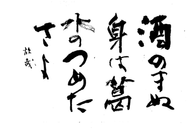 酒のまぬ
身は葛
水のつめた
さよ